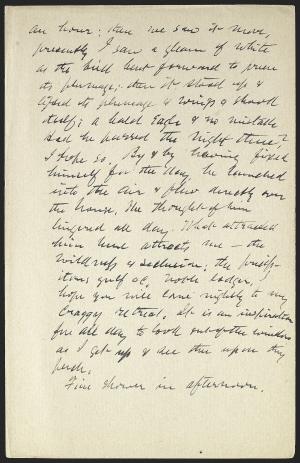 an hour; then we saw it move,
presently I saw a gleam of white
as the bird bent forward to pruen
its plumage; then it stood up &
lifted its plumage & wings & shook
itself; a bald Eagle & no mistake
Had he passed the night there?
I hope so. By & by having fixed
himself for the day, he launched
into the air & flew directly over
the house. The thought of him
lingered all day. What attracted
him here attracts me — the
wildness & seclusion, the precip-
itous gulf &c. Noble lodger, I
hope you will come nightly to my
Craggy retreat. It is an inspiration
for all day to look out of the window
as I get up & see thee upon thy
perch.
Fine shower in afternoon.